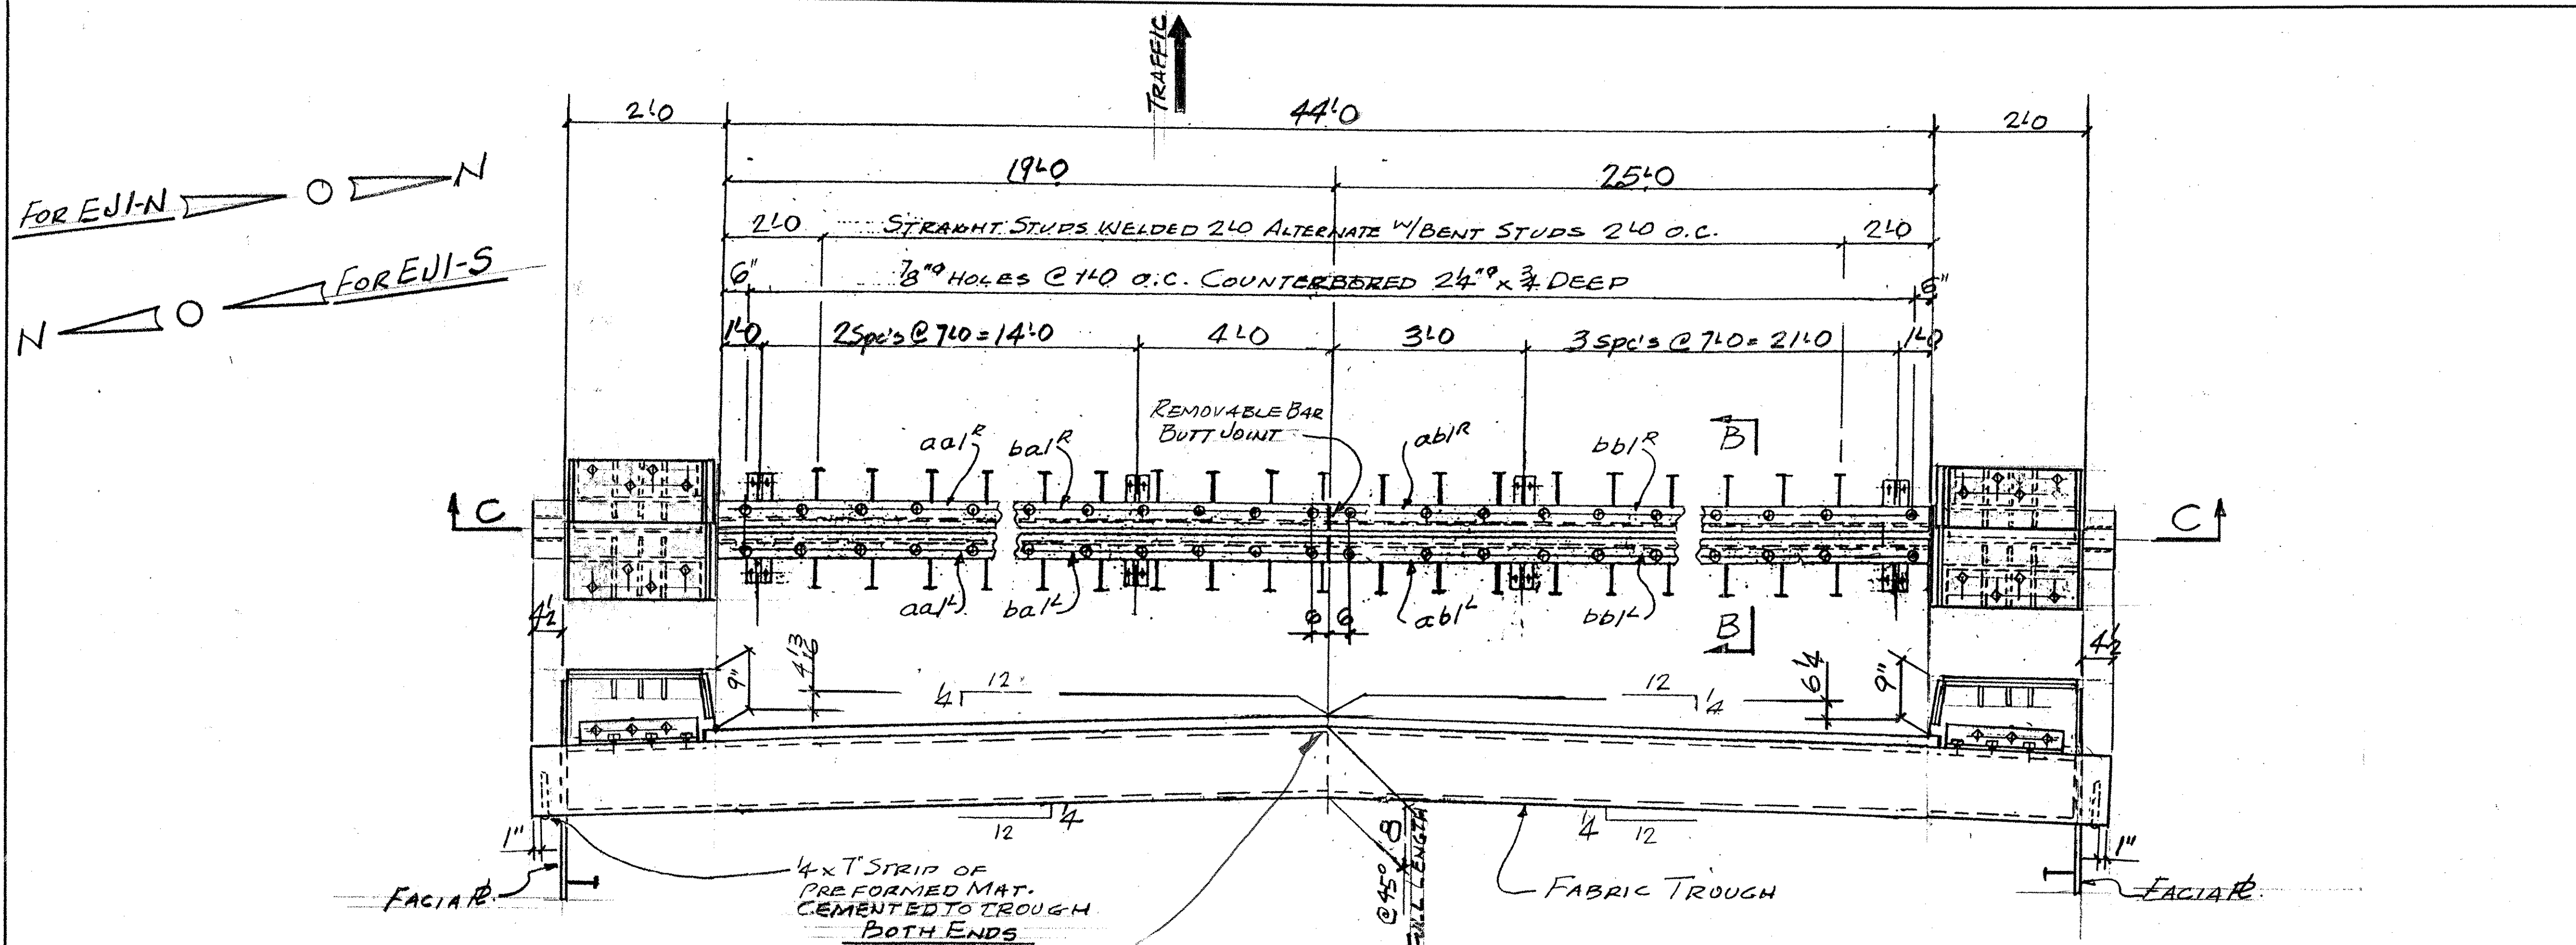 TRAFFIC
2'-0
44'-0
2'-0
19'-0
25'-0
FOR EJ1-N
N
FOR EJ1-S
N
2'-0
STRAIGHT STUDS WELDED 2'-0 ALTERNATE W/BENT STUDS 2'-0 O.C.
2'-0
6"
7/8"ø HOLES @ 1'-0 O.C. COUNTERBORED 2 1/4"ø x 3/4 DEEP
6"
1'-0
2 Spc's @ 7'-0 = 14'-0
4'-0
3'-0
3 Spc's @ 7'-0 = 21'-0
1'-0
REMOVABLE BAR
BUTT JOINT
aa1R
ba1R
ab1R
bb1R
B
C
C
aa1L
ba1L
6
6
ab1L
bb1L
B
4 1/2
4 1/2
9"
12
1/4
12
1/4
6 1/4
9"
1"
12
1/4
1/4
12
1"
FACIA PL.
1/4 x 7" STRIP OF
PREFORMED MAT.
CEMENTED TO TROUGH
BOTH ENDS
8
@ 45°
FULL LENGTH
FABRIC TROUGH
FACIA PL.